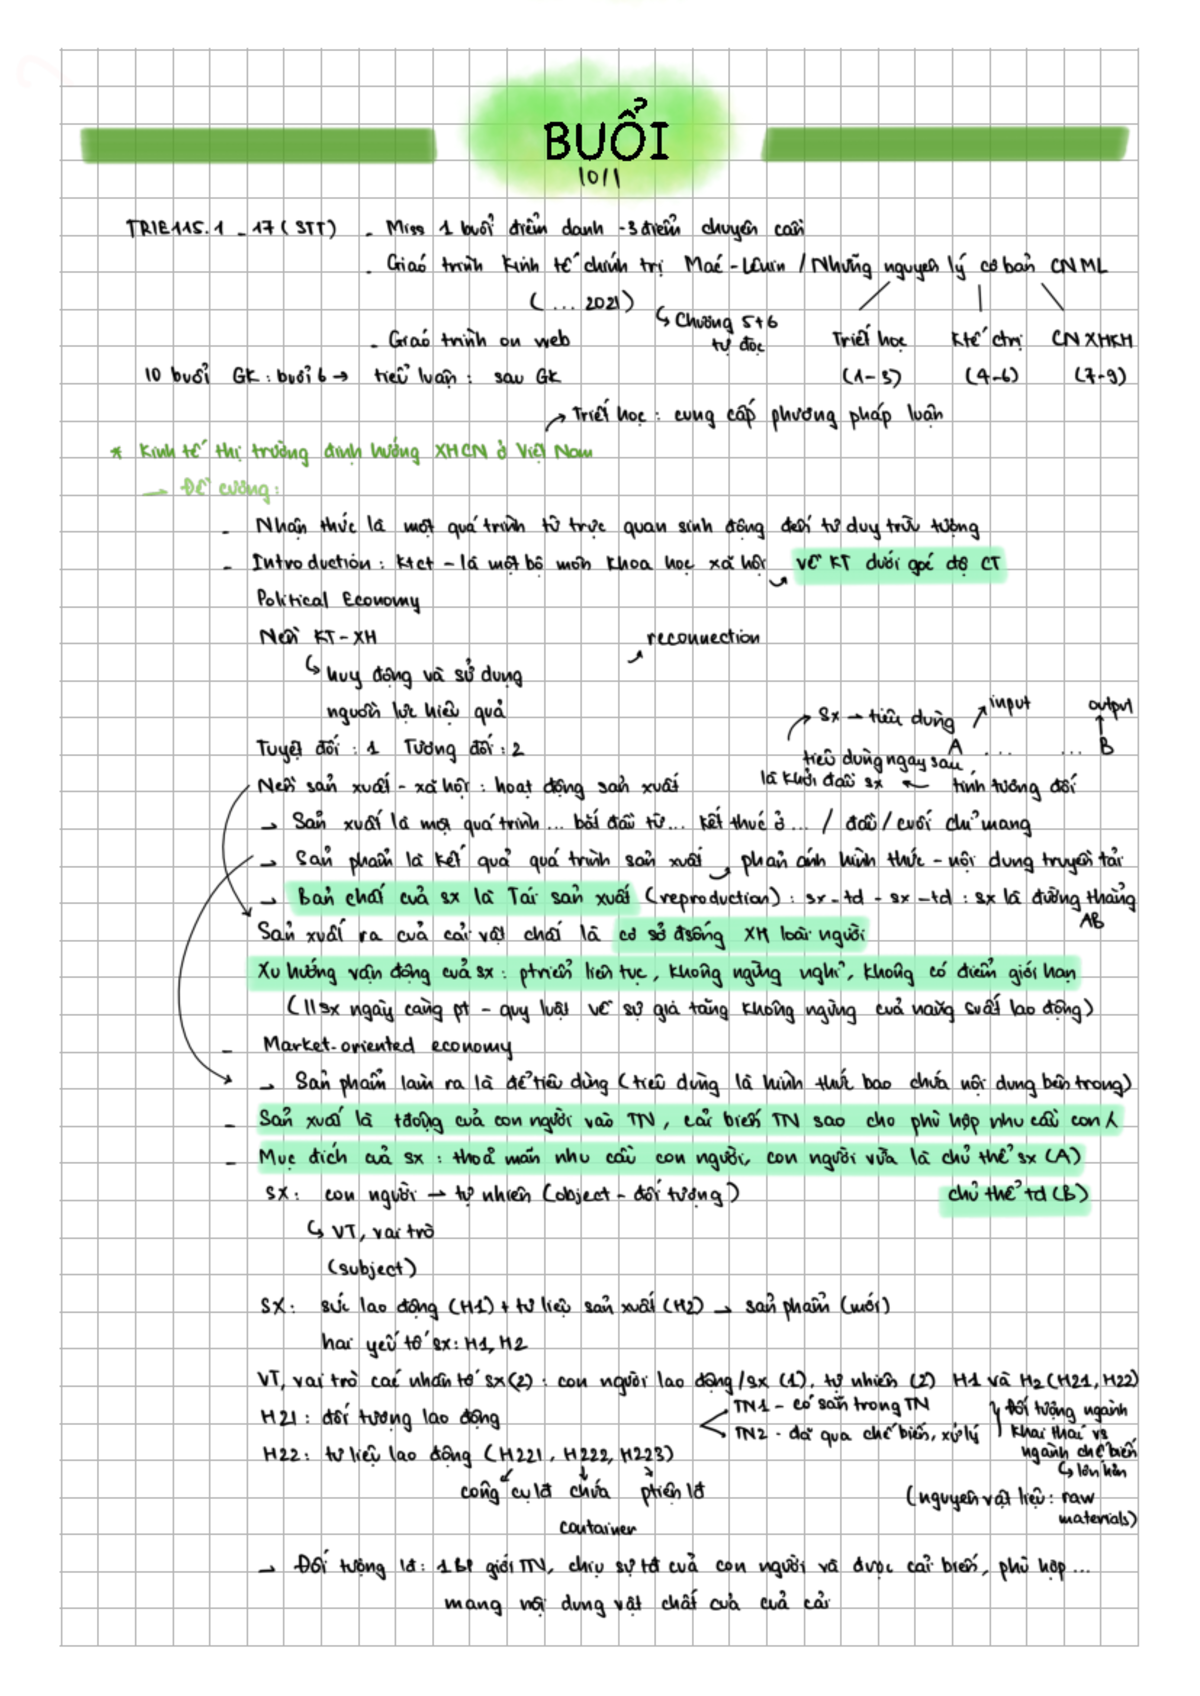 BUỔI
10/1
TRIE115.1 - 17 (STT) - Miss 1 buổi điểm danh -3 điểm chuyên cần
- Giáo trình Kinh tế chính trị Mác-Lênin / Những nguyên lý cơ bản CNML
(... 2021)
↳ Chương 5+6
tự đọc
- Giáo trình on web
Triết học Ktế ctrị CNXHKH
10 buổi GK: buổi 6 → tiểu luận: sau GK
(1-3) (4-6) (7-9)
→ Triết học: cung cấp phương pháp luận
* Kinh tế thị trường định hướng XHCN ở Việt Nam
→ Đề cương:
- Nhận thức là một quá trình từ trực quan sinh động đến tư duy trừu tượng
- Introduction: Ktct - là một bộ môn khoa học xã hội về KT dưới góc độ CT
Political Economy
Nền KT-XH
reconnection
↳ huy động và sử dụng
nguồn lực hiệu quả
→ Sx → tiêu dùng
input
output
Tuyệt đối: 1 Tương đối: 2
A ... ... B
tiêu dùng ngay sau
là khởi đầu sx ← tính tương đối
Nền sản xuất - xã hội: hoạt động sản xuất
→ Sản xuất là một quá trình... bắt đầu từ... kết thúc ở... / đầu/cuối chỉ mang
→ Sản phẩm là kết quả quá trình sản xuất → phản ánh hình thức - nội dung truyền tải
→ Bản chất của sx là Tái sản xuất (reproduction): sx-td-sx-td: sx là đường thẳng
AB
Sản xuất ra của cải vật chất là cơ sở đsống XH loài người
Xu hướng vận động của sx: ptriển liên tục, không ngừng nghỉ, không có điểm giới hạn
(llsx ngày càng pt - quy luật về sự gia tăng không ngừng của năng suất lao động)
- Market-oriented economy
→ Sản phẩm làm ra là để tiêu dùng (tiêu dùng là hình thức bao chứa nội dung bên trong)
- Sản xuất là tđộng của con người vào TN, cải biến TN sao cho phù hợp nhu cầu con
- Mục đích của sx: thoả mãn nhu cầu con người, con người vừa là chủ thể sx (A)
chủ thể td (B)
SX: con người → tự nhiên (object - đối tượng)
↳ VT, vai trò
(subject)
SX: sức lao động (H1) + tư liệu sản xuất (H2) → sản phẩm (mới)
hai yếu tố sx: H1, H2
VT, vai trò các nhân tố sx(2): con người lao động/sx (1), tự nhiên (2) H1 và H2 (H21, H22)
H21: đối tượng lao động
TN1 - có sẵn trong TN
TN2 - đã qua chế biến, xử lý
Đối tượng ngành
khai thác vs
ngành chế biến
↳ lớn hơn
H22: tư liệu lao động (H221, H222, H223)
công cụ lđ chứa ptiện lđ
(nguyên vật liệu: raw
materials)
container
→ Đối tượng lđ: 1 BP giới TN, chịu sự tđ của con người và được cải biến, phù hợp...
mang nội dung vật chất của của cải